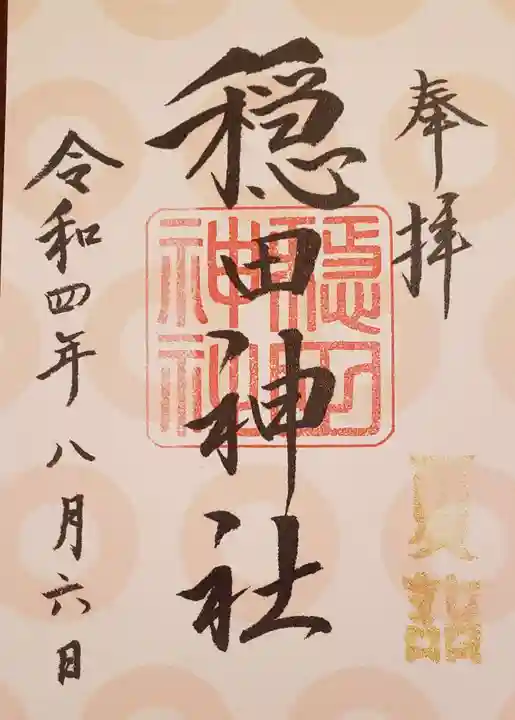 奉拝
穏田神社
穏田神社
令和四年八月六日